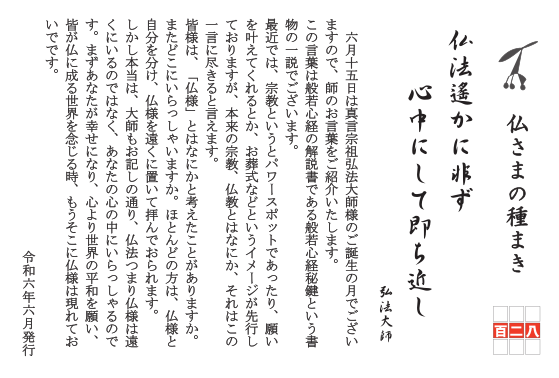 仏さまの種まき
百二八
仏法遙かに非ず
心中にして即ち近し
弘法大師
六月十五日は真言宗祖弘法大師様のご誕生の月でござい
ますので、師のお言葉をご紹介いたします。
この言葉は般若心経の解説書である般若心経秘鍵という書
物の一説でございます。
最近では、宗教というとパワースポットであったり、願い
を叶えてくれるとか、お葬式などというイメージが先行し
ておりますが、本来の宗教、仏教とはなにか、それはこの
一言に尽きると言えます。
皆様は、「仏様」とはなにかと考えたことがありますか。
またどこにいらっしゃいますか。ほとんどの方は、仏様と
自分を分け、仏様を遠くに置いて拝んでおられます。
しかし本当は、大師もお記しの通り、仏法つまり仏様は遠
くにいるのではなく、あなたの心の中にいらっしゃるので
す。まずあなたが幸せになり、心より世界の平和を願い、
皆が仏に成る世界を念じる時、もうそこに仏様は現れてお
いでです。
令和六年六月発行